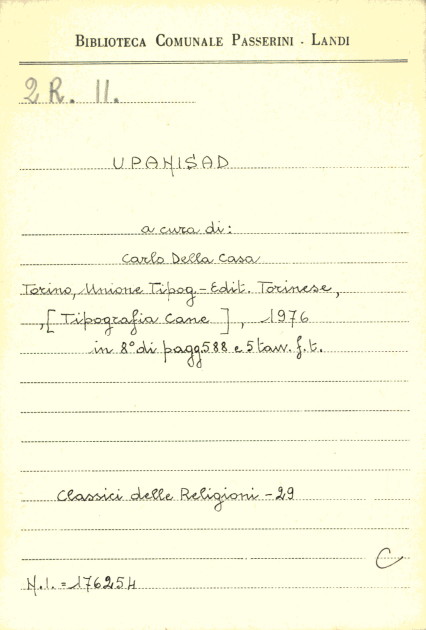 BIBLIOTECA COMUNALE PASSERINI - LANDI
2 R. 11.
UPANISAD
a cura di:
Carlo Della Casa
Torino, Unione Tipog.-Edit. Torinese,
,[Tipografia Cane], 1976
in 8° di pagg 588 e 5 tav. f.t.
Classici delle Religioni - 29
C
N.I. = 176254